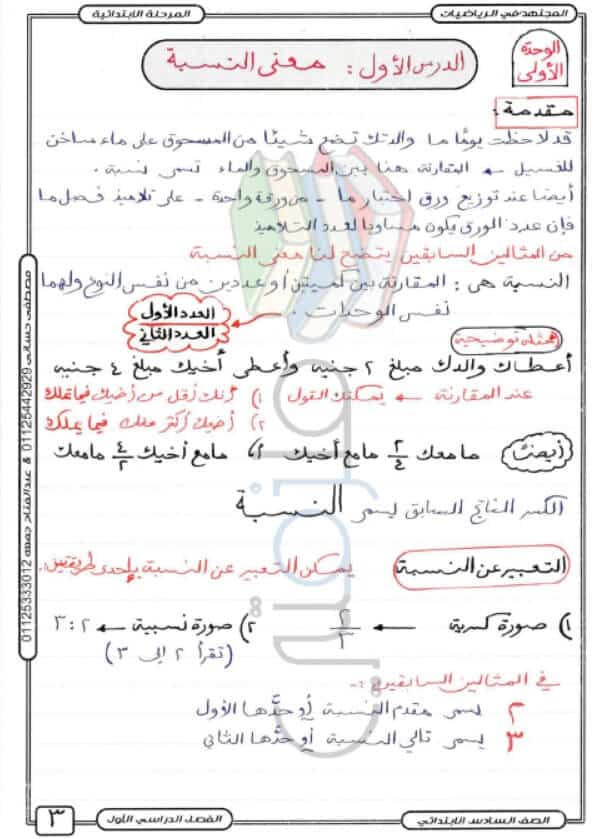 المجتهد في الرياضيات
المرحلة الابتدائية
الوحدة الأولى
الدرس الأول : معنى النسبة
مقدمة :
قد لاحظت يومًا ما والدتك تضع شيئًا من المسحوق على ماء ساخن
للغسيل ← المقارنة هنا بين المسحوق والماء تسمى نسبة .
أيضا عند توزيع ورق اختبار ما - من ورقة واحدة - على تلاميذ فصل ما
فإن عدد الورق يكون مساويا لعدد التلاميذ
من المثالين السابقين يتضح لنا معنى النسبة
النسبة هى : المقارنة بين كميتين أو عددين من نفس النوع ولهما
نفس الوحدات .
العدد الأول
العدد الثاني
أمثلة توضيحية
أعطاك والدك مبلغ ٢ جنيه وأعطى أخيك مبلغ ٤ جنيه
عند المقارنة ← يمكنك القول ١) أنك أقل من أخيك فيما تملك
٢) أخيك أكثر منك فيما يملك
أيضًا ما معك ٢/٤ ما مع أخيك أ، ما مع أخيك ٤/٢ ما معك
الكسر الناتج السابق يسمى النسبة
التعبير عن النسبة يمكن التعبير عن النسبة بإحدى طريقتين :
١) صورة كسرية ← ٢/٣ ٢) صورة نسبية ← ٢ : ٣
(تقرأ ٢ إلى ٣)
في المثالين السابقين :-
٢ يسمى مقدم النسبة أو حدّها الأول
٣ يسمى تالي النسبة أو حدّها الثاني
مصطفى حسانى 01125442929 & عبدالفتاح جمعه 01125333012
ملزمتي
الصف السادس الابتدائي
الفصل الدراسي الأول
٣